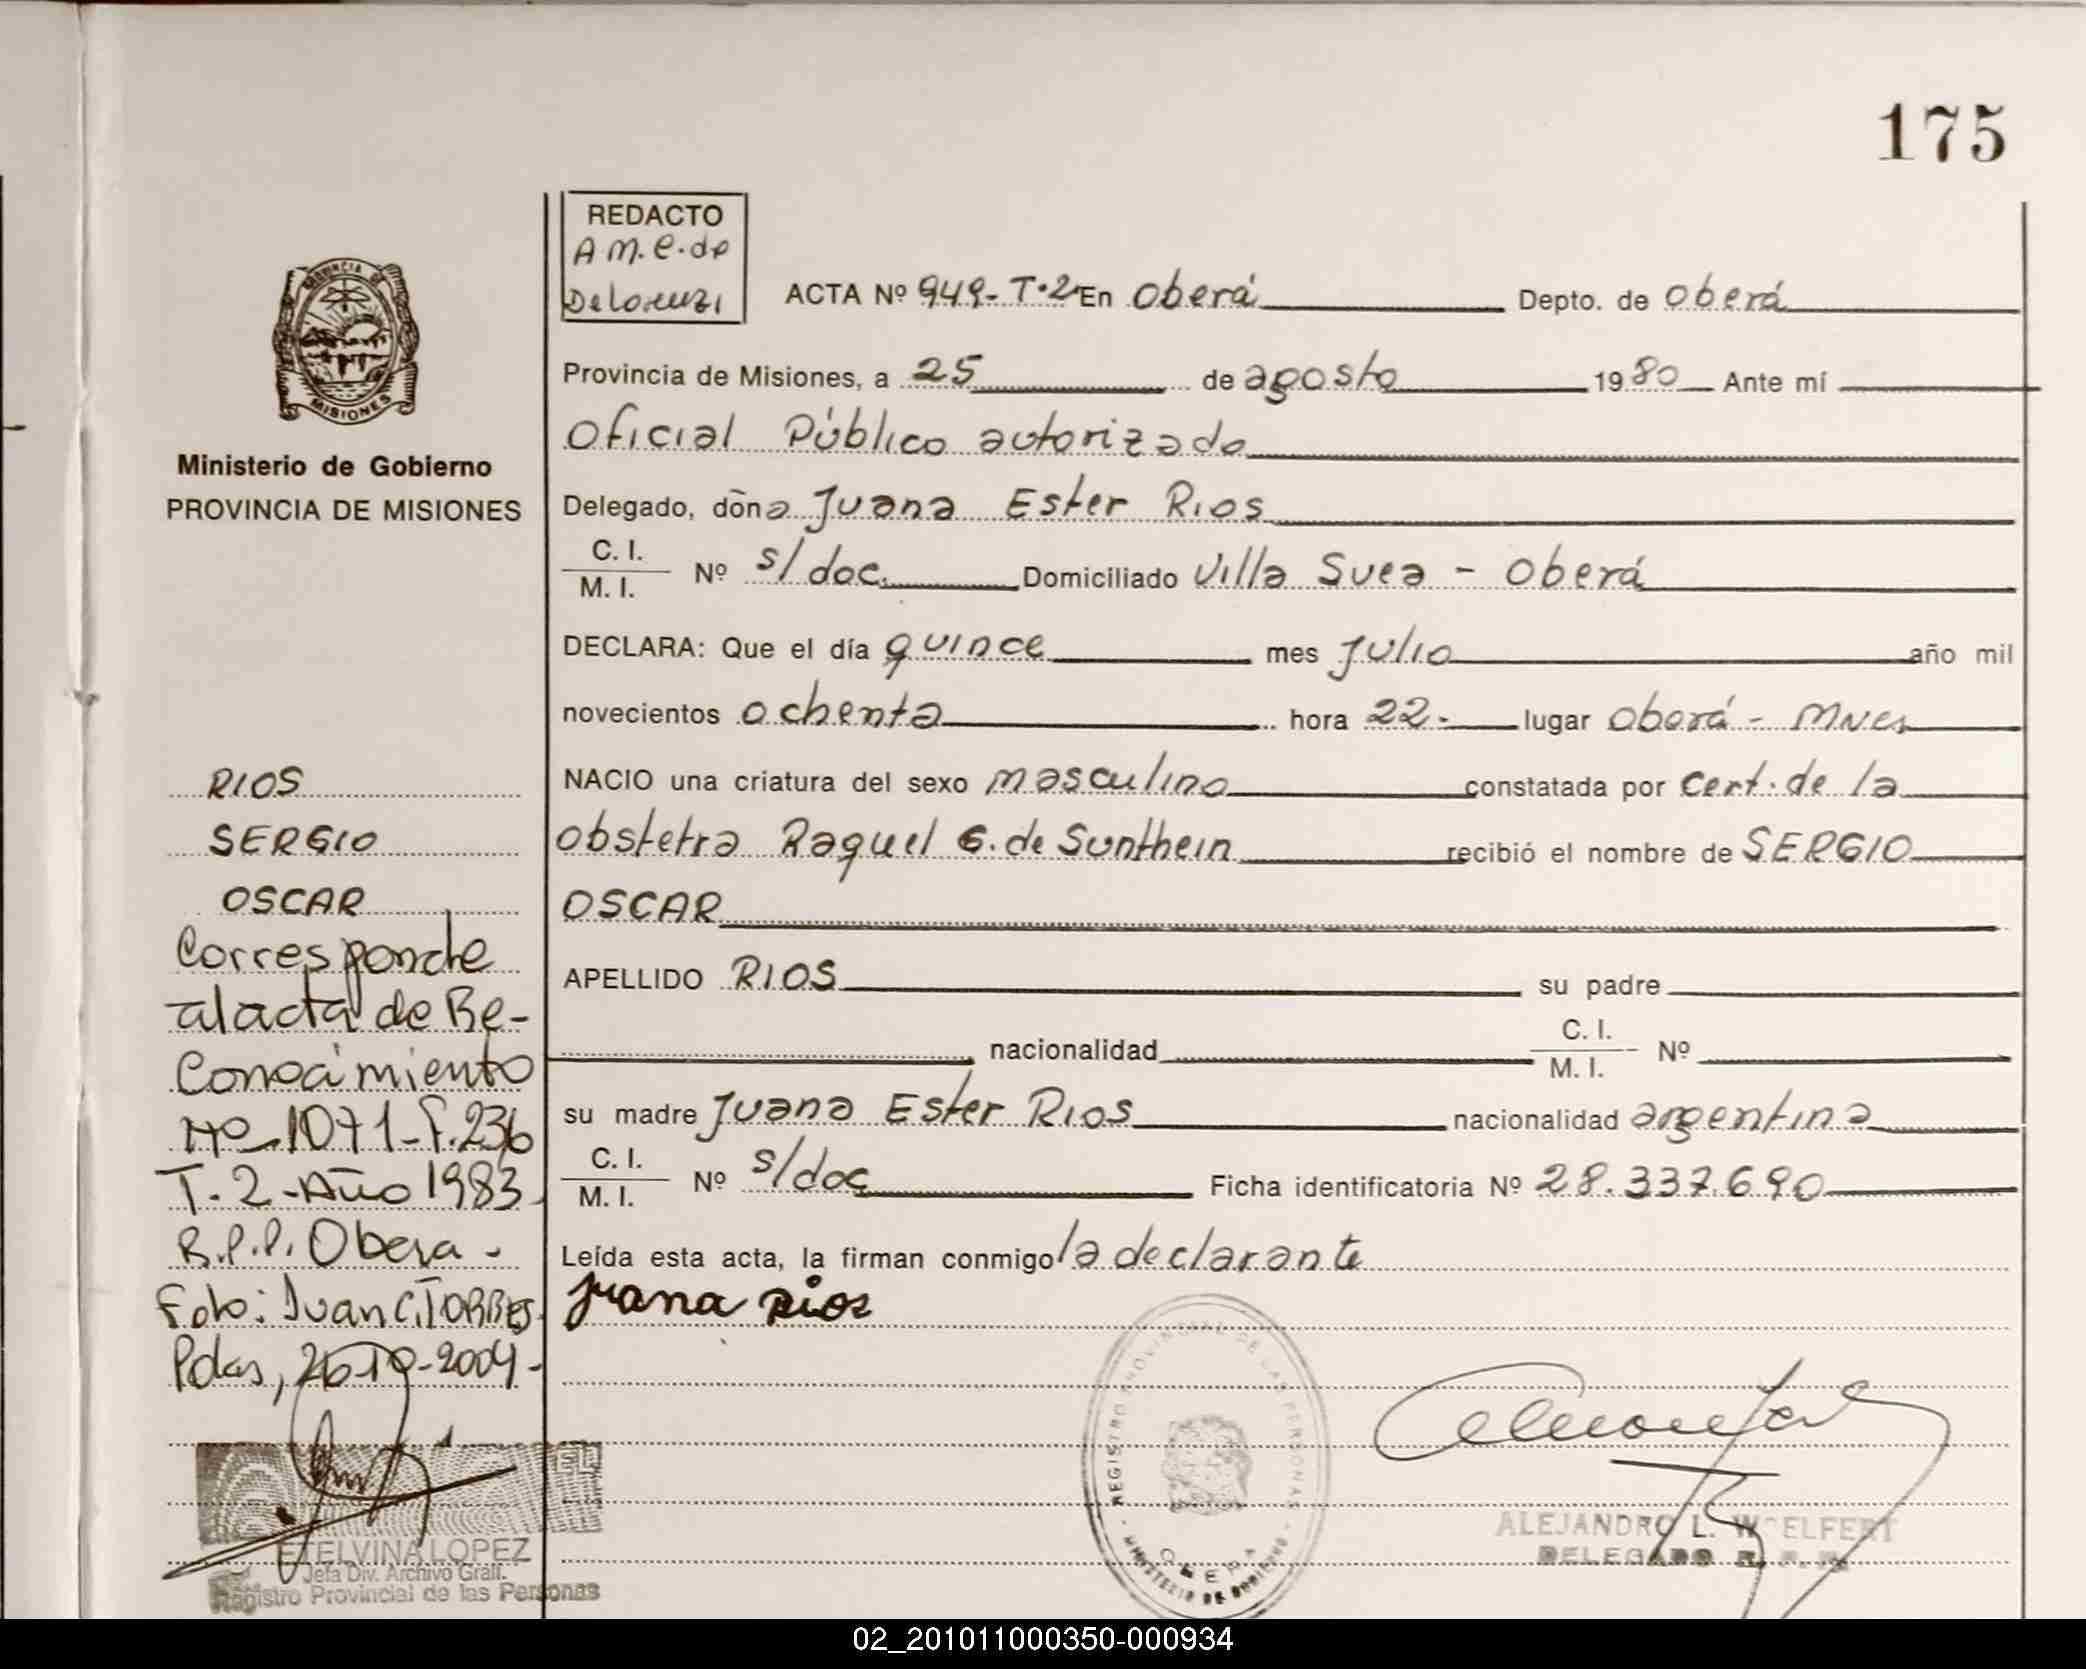 175
REDACTO
A M. e. de
DeLorenzi
ACTA Nº 949-T.2 En Oberá Depto. de Oberá
Provincia de Misiones, a 25 de agosto 1980 Ante mí
Oficial Público autorizado
Delegado, doña Juana Ester Rios
C. I.
M. I. Nº s/doc. Domiciliado Villa Suea - Oberá
DECLARA: Que el día quince mes Julio año mil
novecientos ochenta hora 22.- lugar Oberá - Mnes
NACIO una criatura del sexo masculino constatada por Cert. de la
obstetra Raquel G. de Sunthein recibió el nombre de SERGIO
OSCAR
APELLIDO RIOS su padre
nacionalidad C. I.
M. I. Nº
su madre Juana Ester Rios nacionalidad argentina
C. I.
M. I. Nº s/doc Ficha identificatoria Nº 28.337.690
Leída esta acta, la firman conmigo la declarante
juana rios
PROVINCIA DE
MISIONES
Ministerio de Gobierno
PROVINCIA DE MISIONES
RIOS
SERGIO
OSCAR
Corresponde
al acta de Re-
Conocimiento
Nº 1071-F.236
T.2-Año 1983
R.P.P. Obera.
Foto: Juan C. TORRES
Pdas, 2004-
ETELVINA LOPEZ
Jefa Div. Archivo Gral.
Registro Provincial de las Personas
REGISTRO PROVINCIAL DE LAS PERSONAS
OBERA
MINISTERIO DE GOBIERNO
ALEJANDRO L. WOELFERT
DELEGADO R. P. P.
02_201011000350-000934